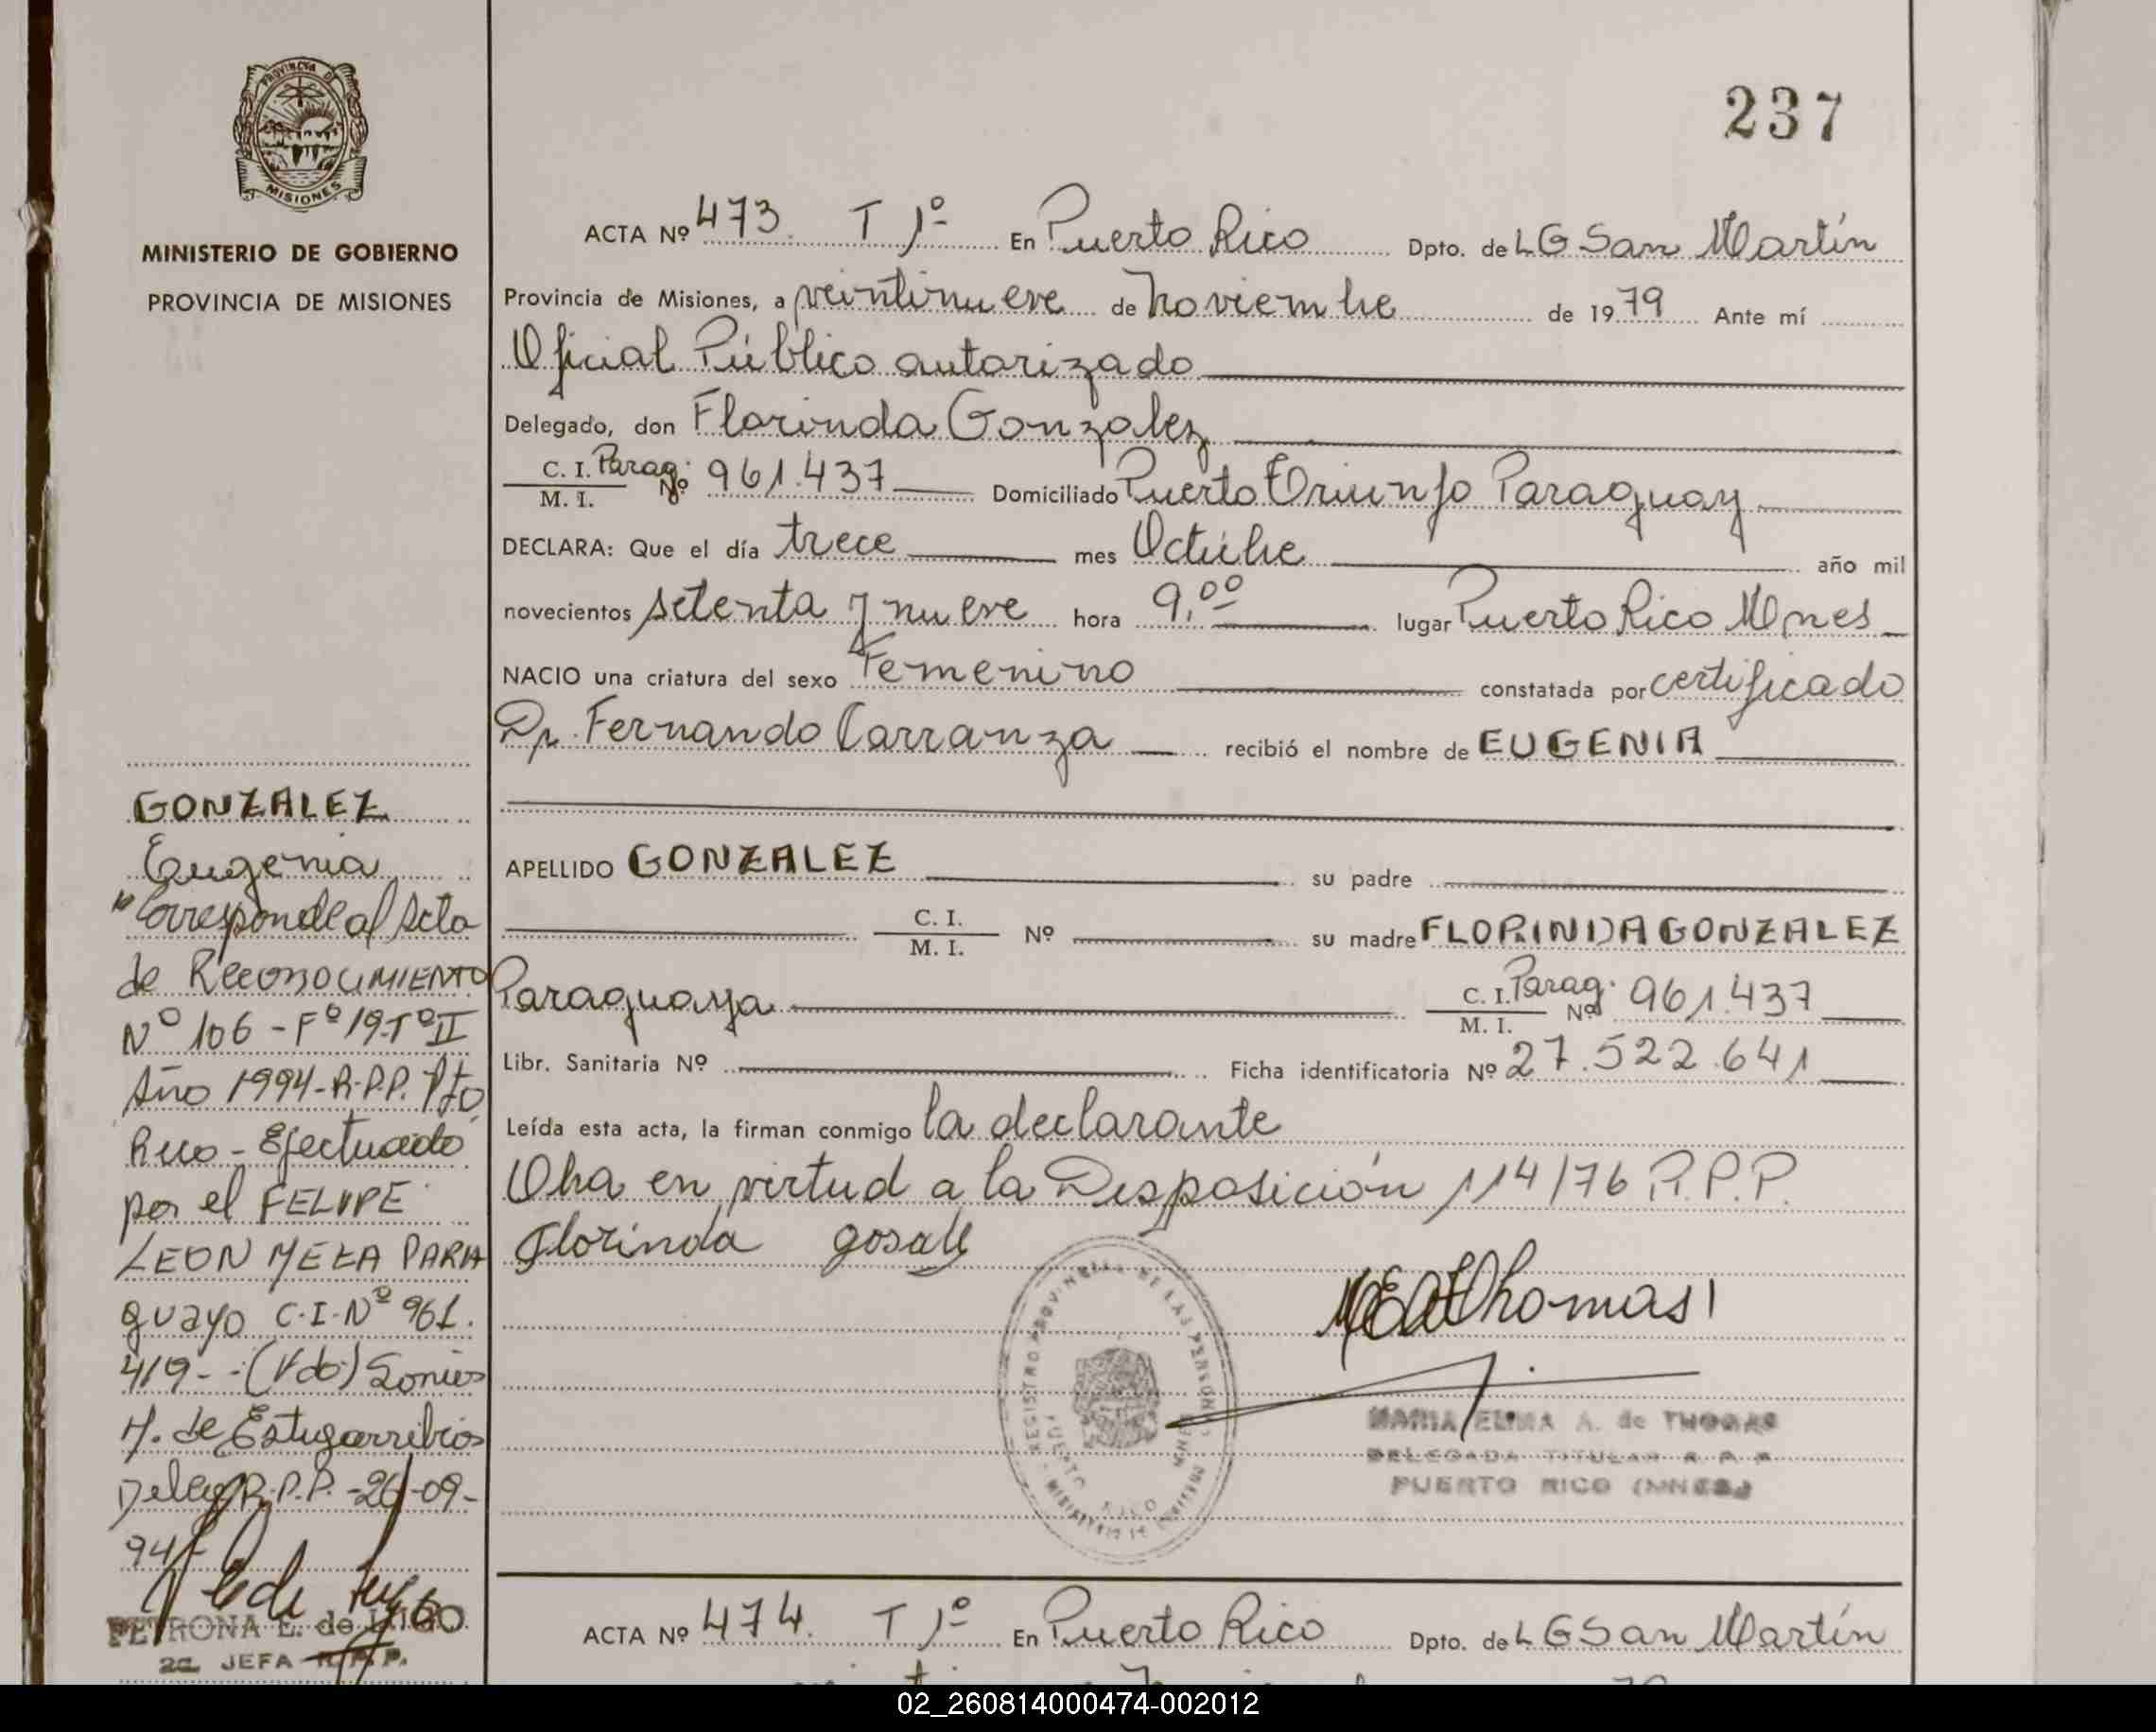 PROVINCIA DE
MISIONES
MINISTERIO DE GOBIERNO
PROVINCIA DE MISIONES
237
ACTA Nº 473. T 1º En Puerto Rico Dpto. de LG San Martín
Provincia de Misiones, a veintinueve de noviembre de 1979 Ante mí
Oficial Público autorizado
Delegado, don Florinda Gonzalez
C. I. Parag: Nº 961.437 Domiciliado Puerto Triunfo Paraguay
M. I.
DECLARA: Que el día trece mes Octubre año mil
novecientos setenta y nueve hora 9,00 lugar Puerto Rico Mnes
NACIO una criatura del sexo Femenino constatada por certificado
Dr. Fernando Carranza recibió el nombre de EUGENIA
APELLIDO GONZALEZ su padre
C. I.
M. I. Nº su madre FLORINDA GONZALEZ
Paraguaya C. I. Parag. Nº 961.437
M. I.
Libr. Sanitaria Nº Ficha identificatoria Nº 27.522.641
Leída esta acta, la firman conmigo la declarante
Oha en virtud a la Disposición 114/76 R.P.P.
Florinda gosalz
MEAThomas
REGISTRO PROVINCIAL DE LAS PERSONAS
PUERTO RICO MNES
MINISTERIO DE GOBIERNO
MARIA ELMA A. de THOMAS
DELEGADA TITULAR R. P. P.
PUERTO RICO (MNES.)
GONZALEZ
Eugenia
"Corresponde al Acta
de RECONOCIMIENTO
Nº 106 - Fº 19-Tº II
Año 1994-R.P.P. Pto.
Rico - Efectuado
por el FELIPE
LEON MEZA PARA
guayo C.I-Nº 961.
419- -(Fdo) Sonia
M. de Estigarribia
Deleg R.P.P. -26-09-
94
PETRONA E. de LUGO
2a. JEFA R.P.P.
ACTA Nº 474. T 1º En Puerto Rico Dpto. de LG San Martín
02_260814000474-002012